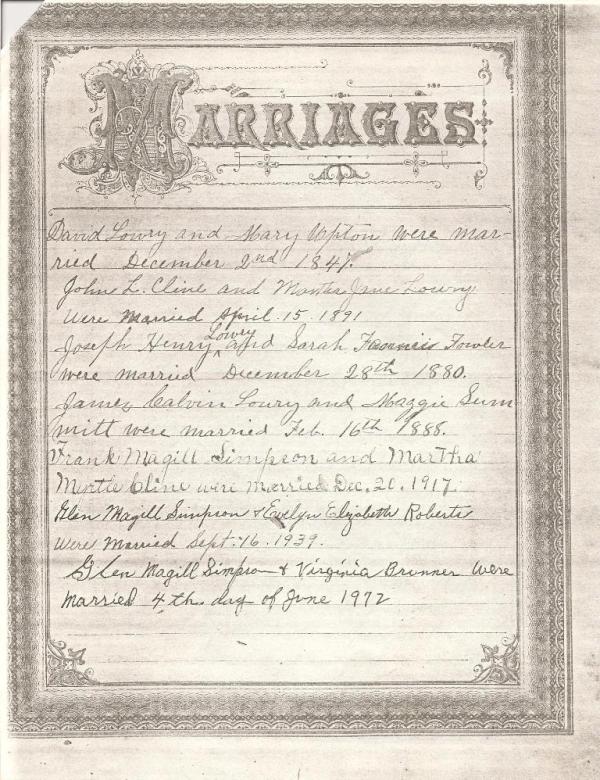 MARRIAGES
David Lowry and Mary Upton were mar-
ried December 2nd 1847.
John L. Cline and Martha Jane Lowry
were Married April. 15. 1891
Lowry
Joseph Henry ^ and Sarah Francis Fowler
were married December 28th 1880.
James Calvin Lowry and Maggie Sum
mitt were married Feb. 16th 1888.
Frank Magill Simpson and Martha
Myrtle Cline were married Dec. 20. 1917.
Glen Magill Simpson & Evelyn Elizabeth Roberts
were Married Sept. 16. 1939.
Glen Magill Simpson & Virginia Brunner were
Married 4th day of June 1972